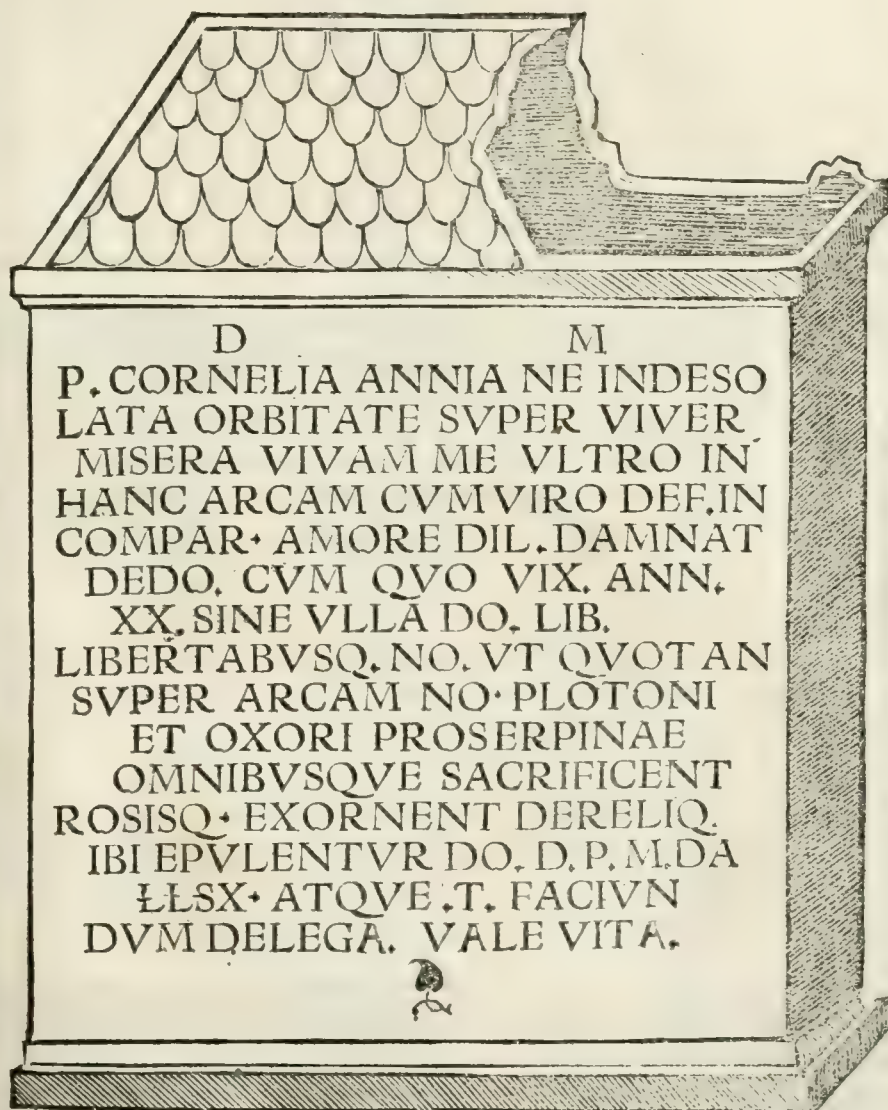 D M
P. CORNELIA ANNIA NE INDESO
LATA ORBITATE SVPER VIVER
MISERA VIVAM ME VLTRO IN
HANC ARCAM CVM VIRO DEF. IN
COMPAR· AMORE DIL. DAMNAT
DEDO. CVM QVO VIX. ANN.
XX. SINE VLLA DO. LIB.
LIBERTABVSQ. NO. VT QVOT AN
SVPER ARCAM NO· PLOTONI
ET OXORI PROSERPINAE
OMNIBVSQVE SACRIFICENT
ROSISQ· EXORNENT DERELIQ.
IBI EPVLENTVR DO. D. P. M. DA
ⱠⱠSX· ATQVE .T. FACIVN
DVM DELEGA. VALE VITA.